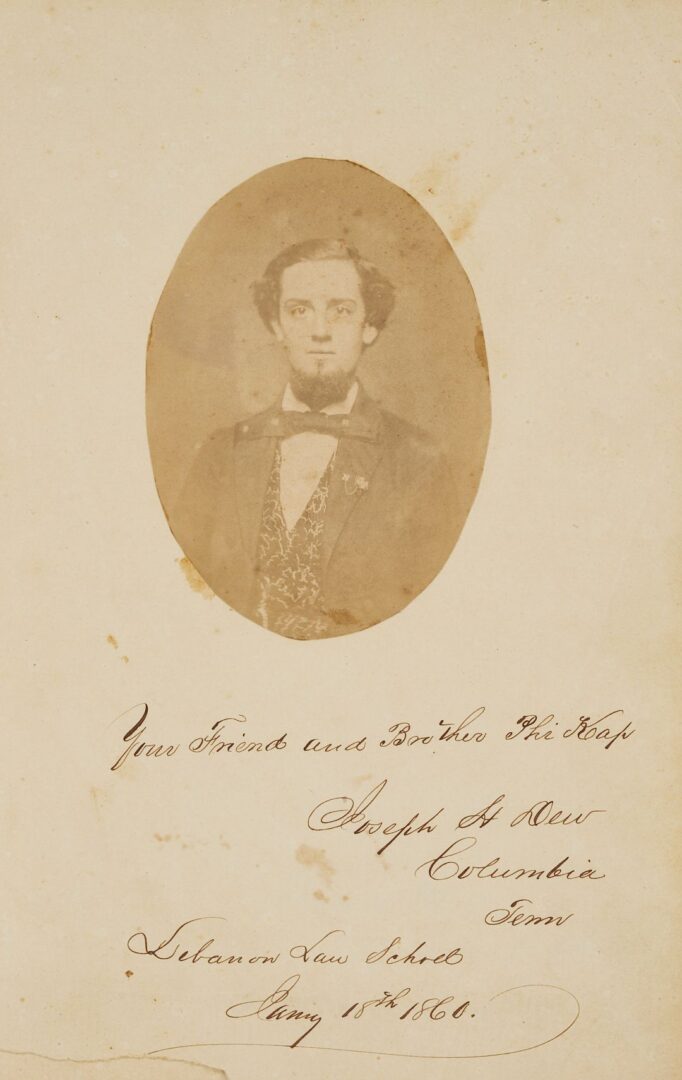 Your Friend and Brother Phi Kap
Joseph H Dew
Columbia
Tenn
Lebanon Law School
Jany 18th 1860.